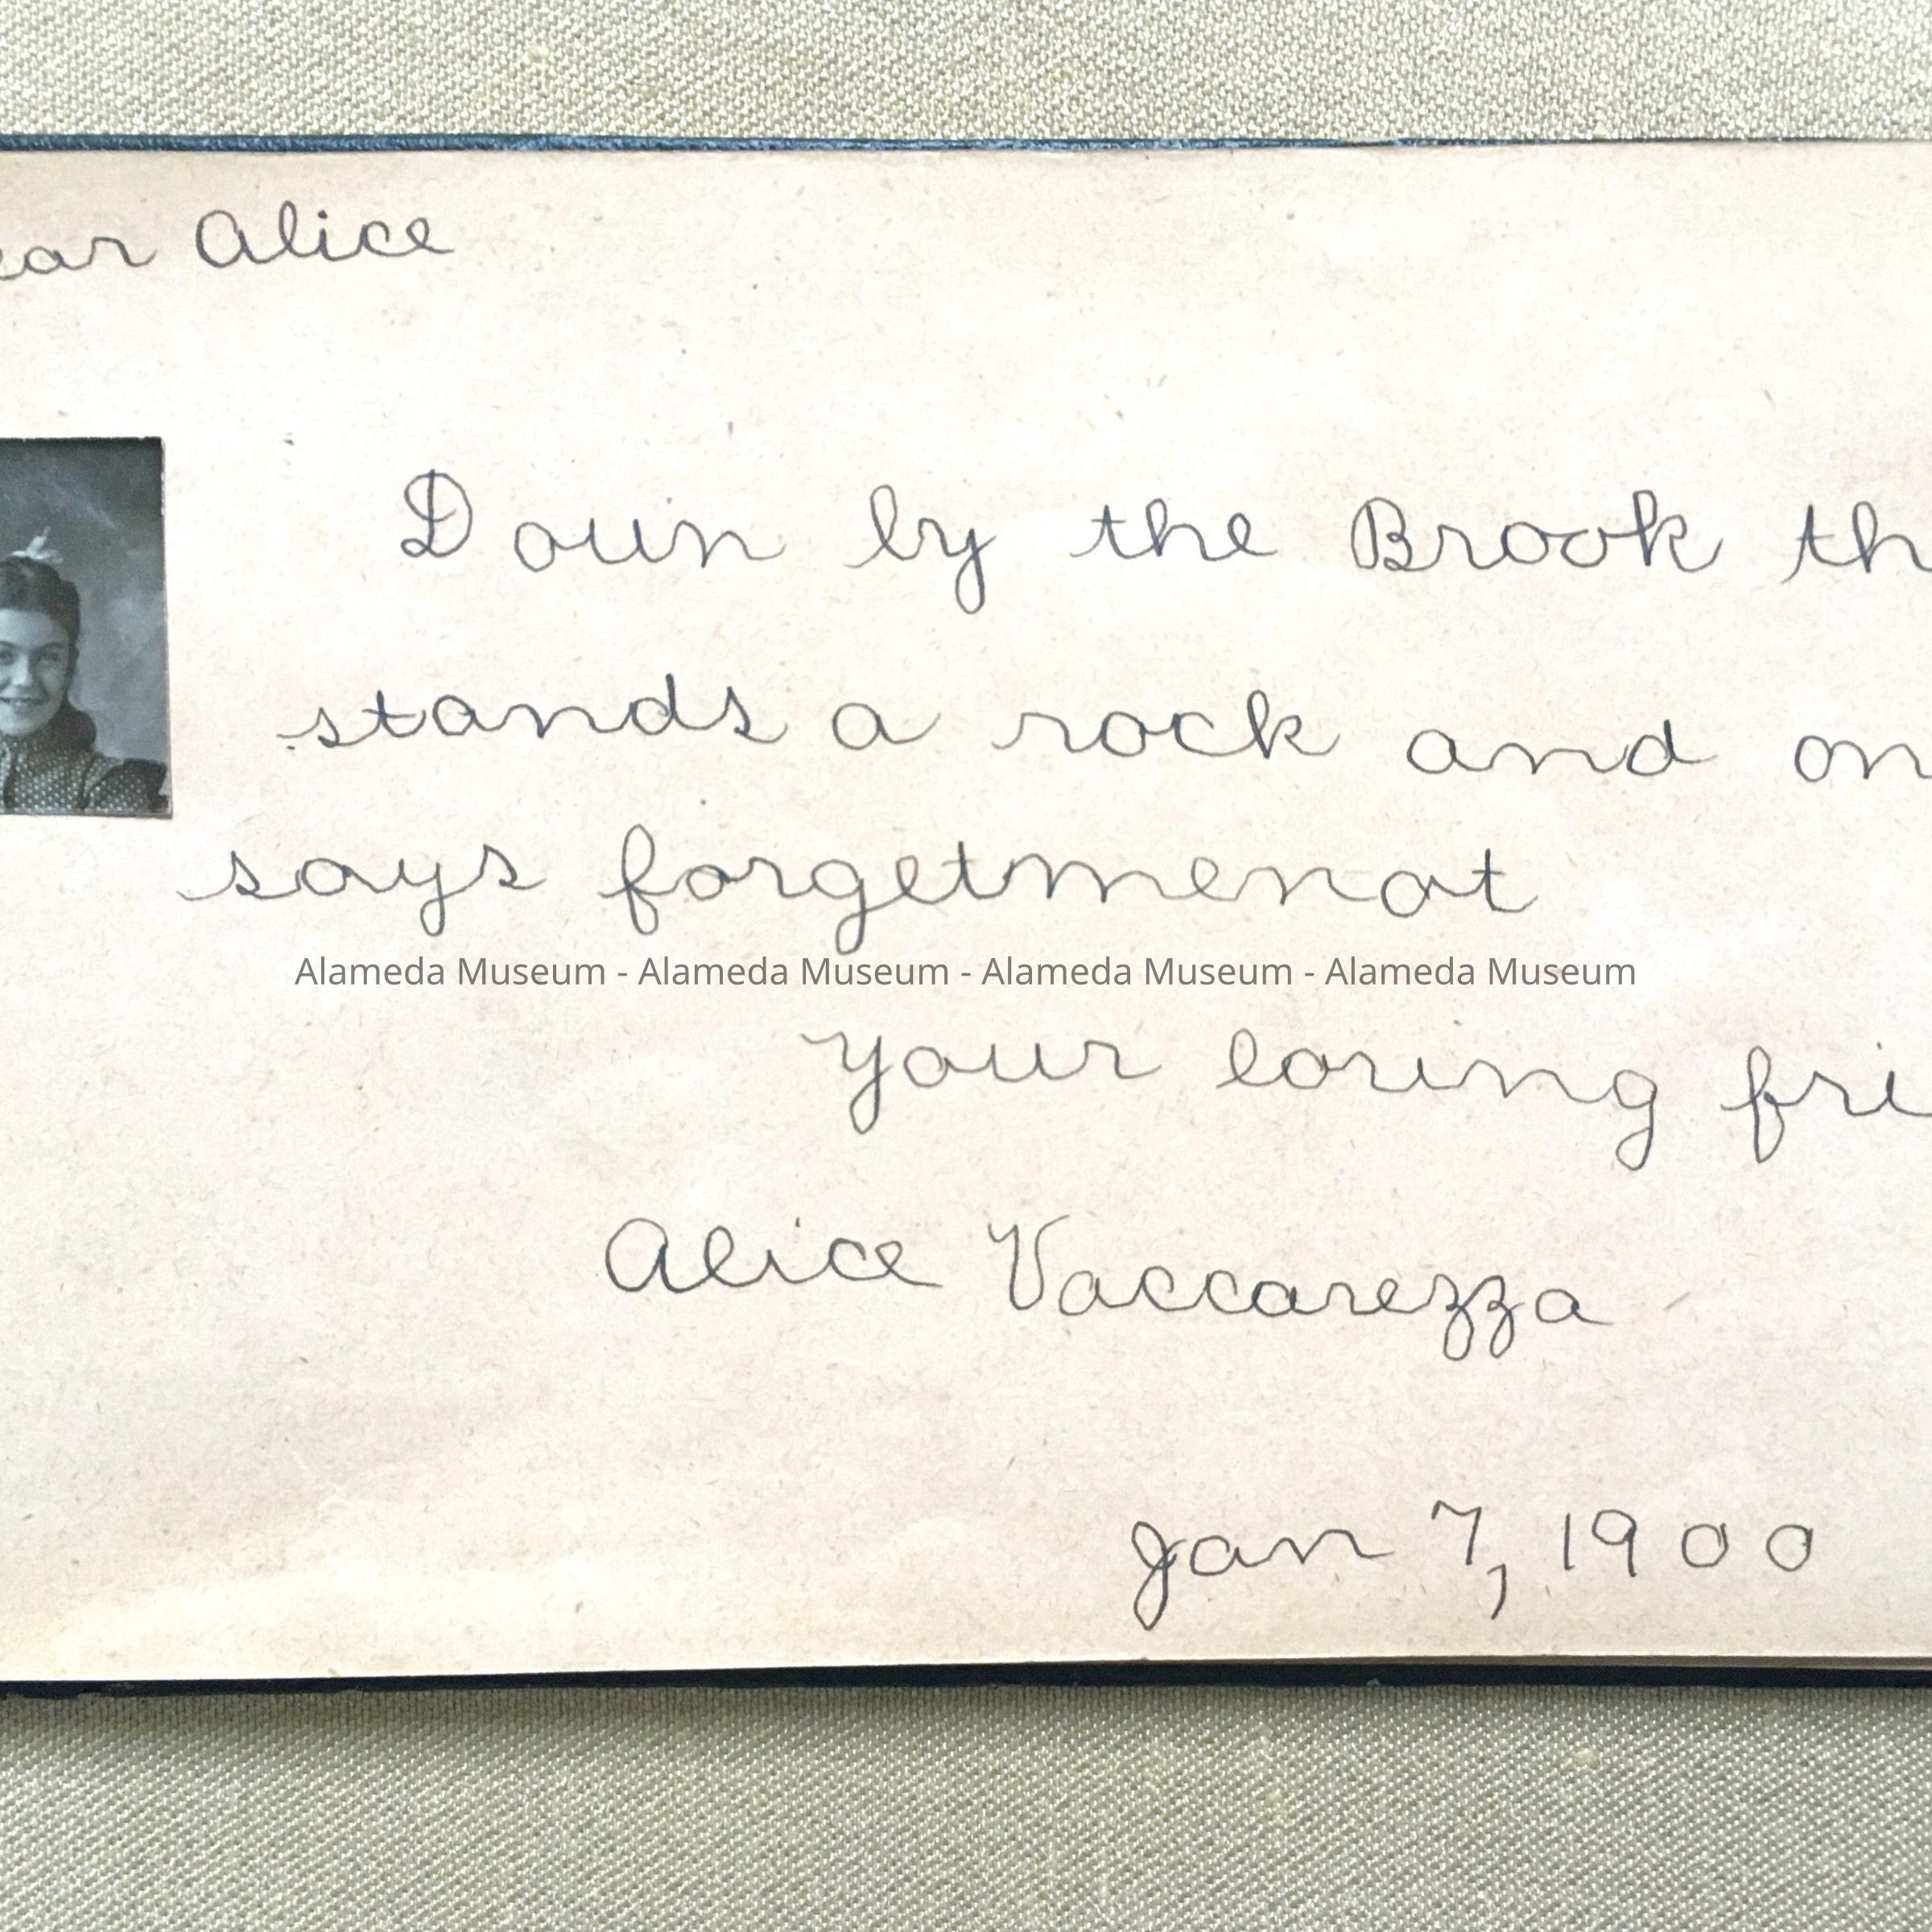 ear Alice
Down by the Brook th
stands a rock and on
says forgetmenot
Alameda Museum - Alameda Museum - Alameda Museum - Alameda Museum
Your loving fri
Alice Vaccarezza
Jan 7, 1900